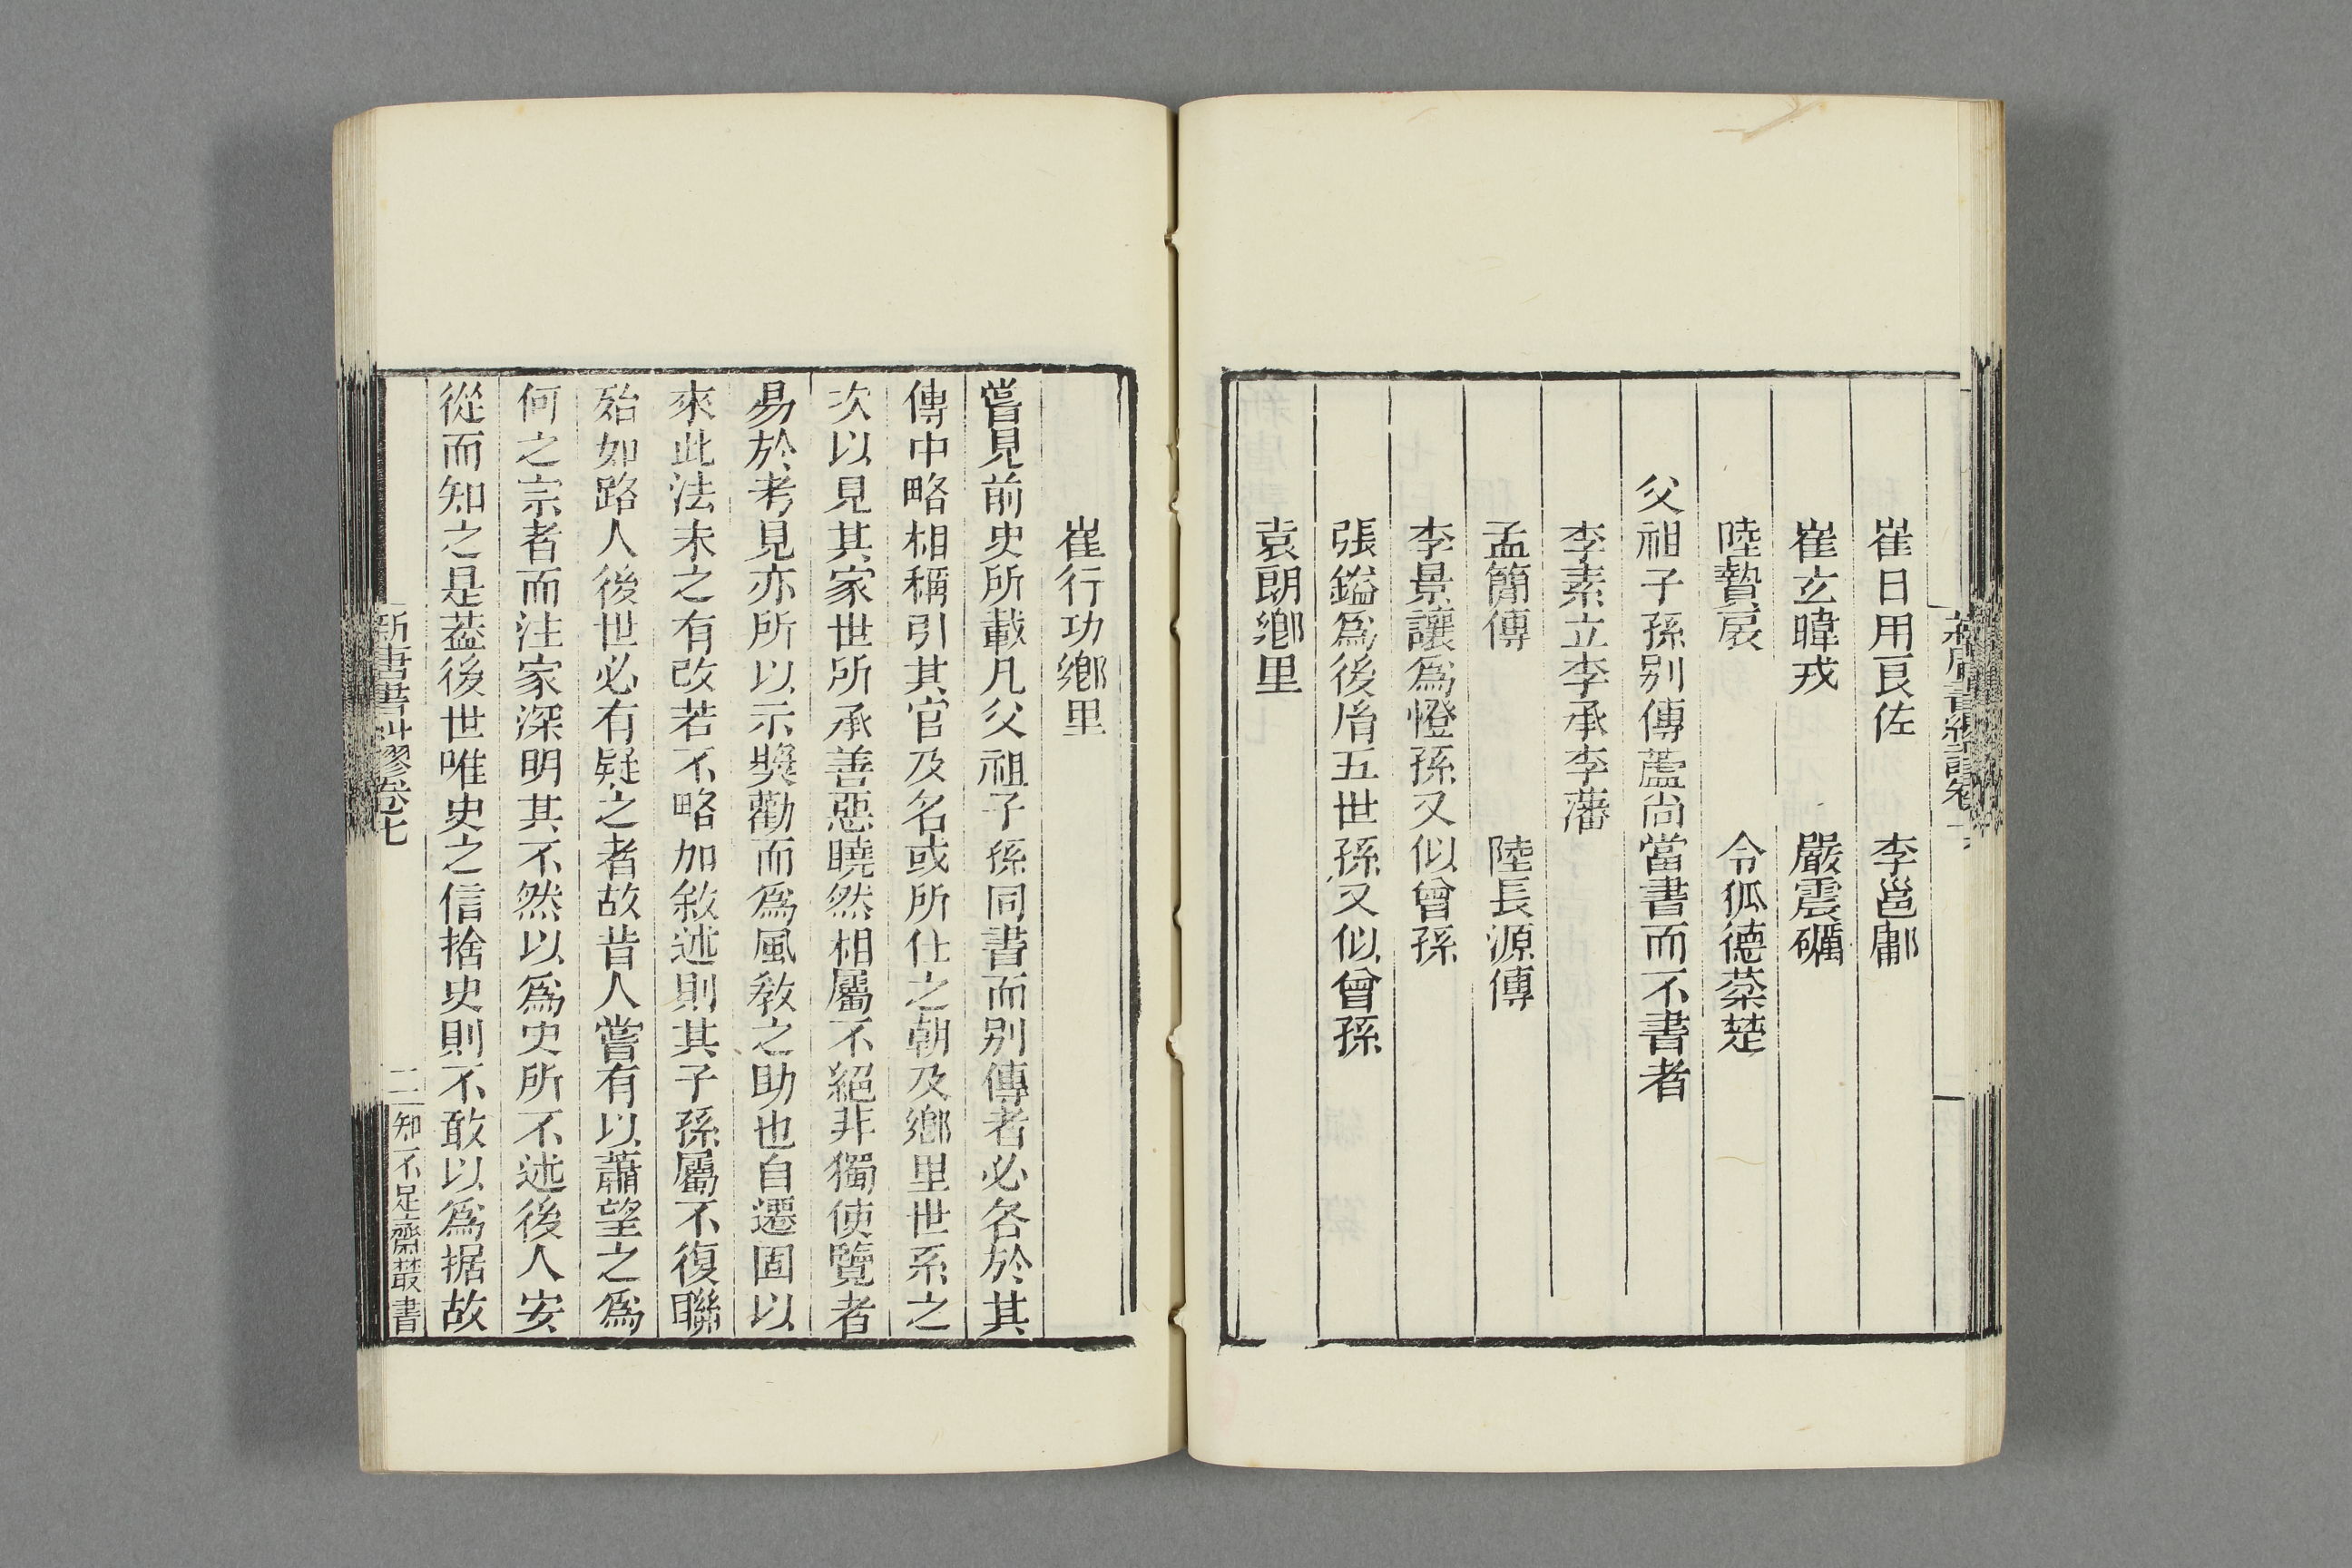 崔日用良佐　李邕鄘
崔玄暐戎　嚴震礪
陸贄扆　令狐德棻楚
父祖子孫別傳蘆尚當書而不書者
李素立李承李藩
孟簡傳　陸長源傳
李景讓為憕孫又似曾孫
張鎰為後㣧五世孫又似曾孫
袁朗鄉里
崔行功鄉里
嘗見前史所載凡父祖子孫同書而別傳者必各於其
傳中略相稱引其官及名或所仕之朝及鄉里世系之
次以見其家世所承善惡曉然相屬不絕非獨使覽者
易於考見亦所以示獎勸而為風敎之助也自遷固以
來此法未之有改若不略加敘述則其子孫屬不復聯
殆如路人後世必有疑之者故昔人嘗有以蕭望之為
何之宗者而注家深明其不然以為史所不述後人安
從而知之是葢後世唯史之信捨史則不敢以為据故
卷七
二
知不足齋叢書